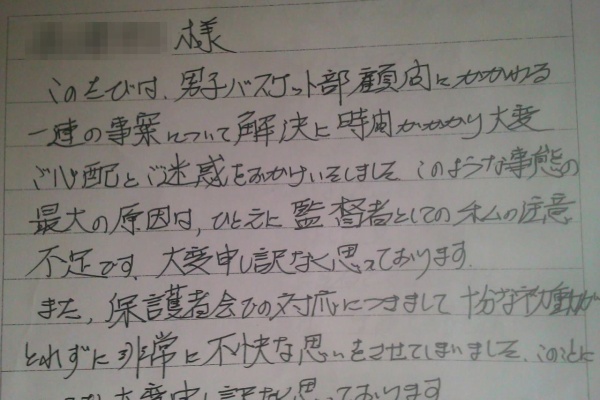 様
このたびは、男子バスケット部顧問にかかわる
一連の事案について解決に時間がかかり大変
ご心配とご迷惑をおかけいたしました。このような事態の
最大の原因は、ひとえに監督者としての私の注意
不足です。大変申し訳なく思っております。
また、保護者会の対応につきまして十分な初動が
とれずに非常に不快な思いをさせてしまいました。このことに
大変申し訳なく思っております